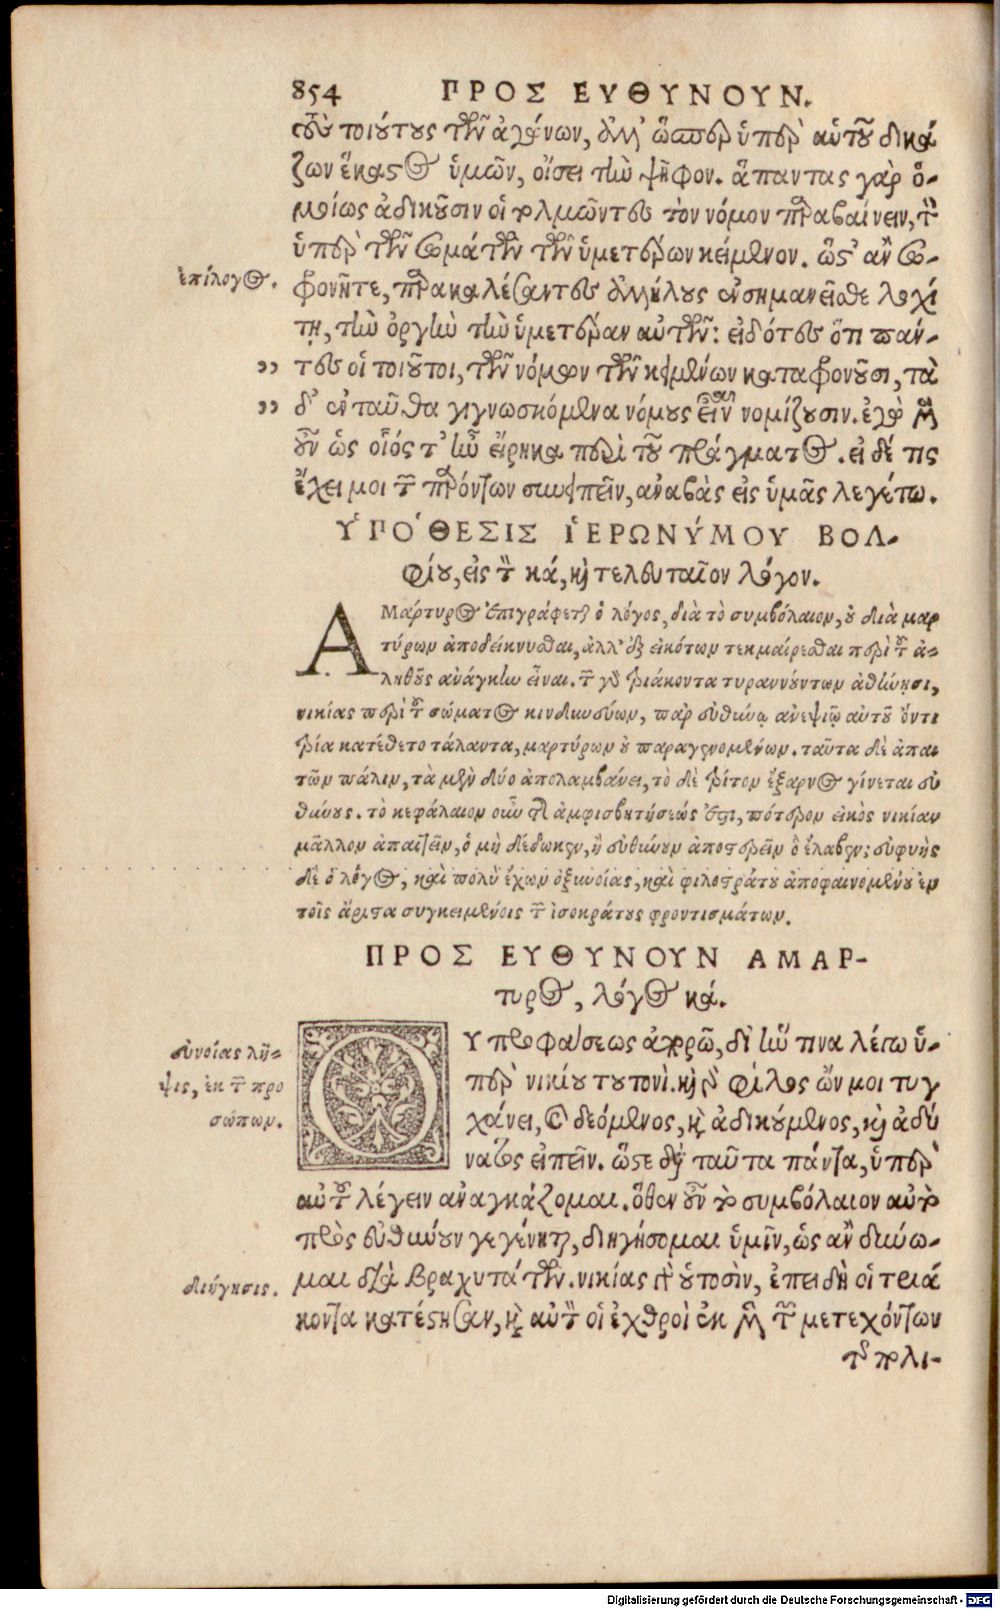 854 ΠΡΟΣ ΕΥΘΥΝΟΥΝ.
τοὺς τοιούτους τῶν ἀγώνων, ἀλλ' ὥσπερ ὑπὲρ αὑτοῦ δικά
ζων ἕκαστος ὑμῶν, οἴσει τὴν ψῆφον. ἅπαντας γὰρ ὁ-
μοίως ἀδικοῦσιν οἱ τολμῶντες τὸν νόμον παραβαίνειν, τὸν
ὑπὲρ τῶν σωμάτων τῶν ὑμετέρων κείμενον. ὥστ' ἂν σω-
ἐπίλογος.
φρονῆτε, παρακαλέσαντες ἀλλήλους ἐνσημανεῖσθε λοχί
τῃ, τὴν ὀργὴν τὴν ὑμετέραν αὐτῶν: εἰδότες ὅτι πάν-
,, τες οἱ τοιοῦτοι, τῶν νόμων τῶν κειμένων καταφρονοῦσι, τὰ
,, δ' ἐνταῦθα γιγνωσκόμενα νόμους εἶναι νομίζουσιν. ἐγὼ μὲν
οὖν ὡς οἷός τ' ἦν εἴρηκα περὶ τοῦ πράγματος. εἰ δέ τις
ἔχει μοι τῶν παρόντων συνειπεῖν, ἀναβὰς εἰς ὑμᾶς λεγέτω.
ΥΠΟΘΕΣΙΣ ἹΕΡΩΝΎΜΟΥ ΒΟΛ-
φίου, εἰς τὸν κά, καὶ τελευταῖον λόγον.
ΑΜάρτυρος ἐπιγράφεται ὁ λόγος, διὰ τὸ συμβόλαιον, οὐ διὰ μαρ
τύρων ἀποδείκνυσθαι, ἀλλ' ἐξ εἰκότων τεκμαίρεσθαι περὶ τοῦ ἀ-
ληθοῦς ἀνάγκην εἶναι. τῶν γὰρ τριάκοντα τυραννούντων ἀθήνησι,
νικίας περὶ τοῦ σώματος κινδυνεύων, παρ' εὐθύνῳ ἀνεψιῷ αὐτοῦ ὄντι
τρία κατέθετο τάλαντα, μαρτύρων οὐ παραγενομένων. ταῦτα δὲ ἀπαι
τῶν πάλιν, τὰ μὲν δύο ἀπολαμβάνει, τὸ δὲ τρίτον ἔξαρνος γίνεται εὐ
θύνους. τὸ κεφάλαιον οὖν τῆς ἀμφισβητήσεώς ἐστι, πότερον εἰκὸς νικίαν
μᾶλλον ἀπαιτεῖν, ὃ μὴ δέδωκεν, ἢ εὐθύνουν ἀποστερεῖν ὃ ἔλαβεν; εὐφυὴς
δὲ ὁ λόγος, καὶ πολὺ ἔχων ὀξυνοίας, καὶ φιλοστράτου ἀποφαινομένου ἐν
τοῖς ἄριστα συγκειμένοις τῶν ἰσοκράτους φροντισμάτων.
ΠΡΟΣ ΕΥΘΥΝΟΥΝ ΑΜΑΡ-
τυρος, λόγος κά.
ΟΥ προφάσεως ἀπορῶ, δι' ἥν τινα λέγω ὑ-
εὐνοίας λῆ-
ψις, ἐκ τῶν προ
σώπων.
πὲρ νικίου τουτονί. καὶ γὰρ φίλος ὤν μοι τυγ
χάνει, καὶ δεόμενος, καὶ ἀδικούμενος, καὶ ἀδύ
νατος εἰπεῖν. ὥστε διὰ ταῦτα πάντα, ὑπὲρ
αὐτοῦ λέγειν ἀναγκάζομαι. ὅθεν οὖν τὸ συμβόλαιον αὐτῷ
πρὸς εὐθύνουν γεγένηται, διηγήσομαι ὑμῖν, ὡς ἂν δύνω-
διήγησις.
μαι διὰ βραχυτάτων. νικίας γὰρ οὑτοσὶν, ἐπειδὴ οἱ τριά
κοντα κατέστησαν, καὶ αὐτὸν οἱ ἐχθροὶ ἐκ μὲν τῶν μετεχόντων
τῆς πολι-
Digitalisierung gefördert durch die Deutsche Forschungsgemeinschaft - DFG